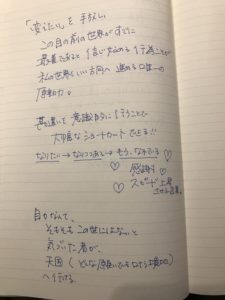 「変えたい」を手放し
この目の前の世界がすでに
最善であると信じ込める行為こそが
私の世界をいい方向へ進める唯一の
原動力。
を通して意識的に行うことで
大幅なショートカットできる!!
なりたい→なりつつある→もう、なれている♡
♡感謝♡
♡スピード上昇
させる言葉。
自力なんて、
そもそもこの世にはないと
気づいた者が、
天国(どんな願いでもかなう境地)
へ行ける。